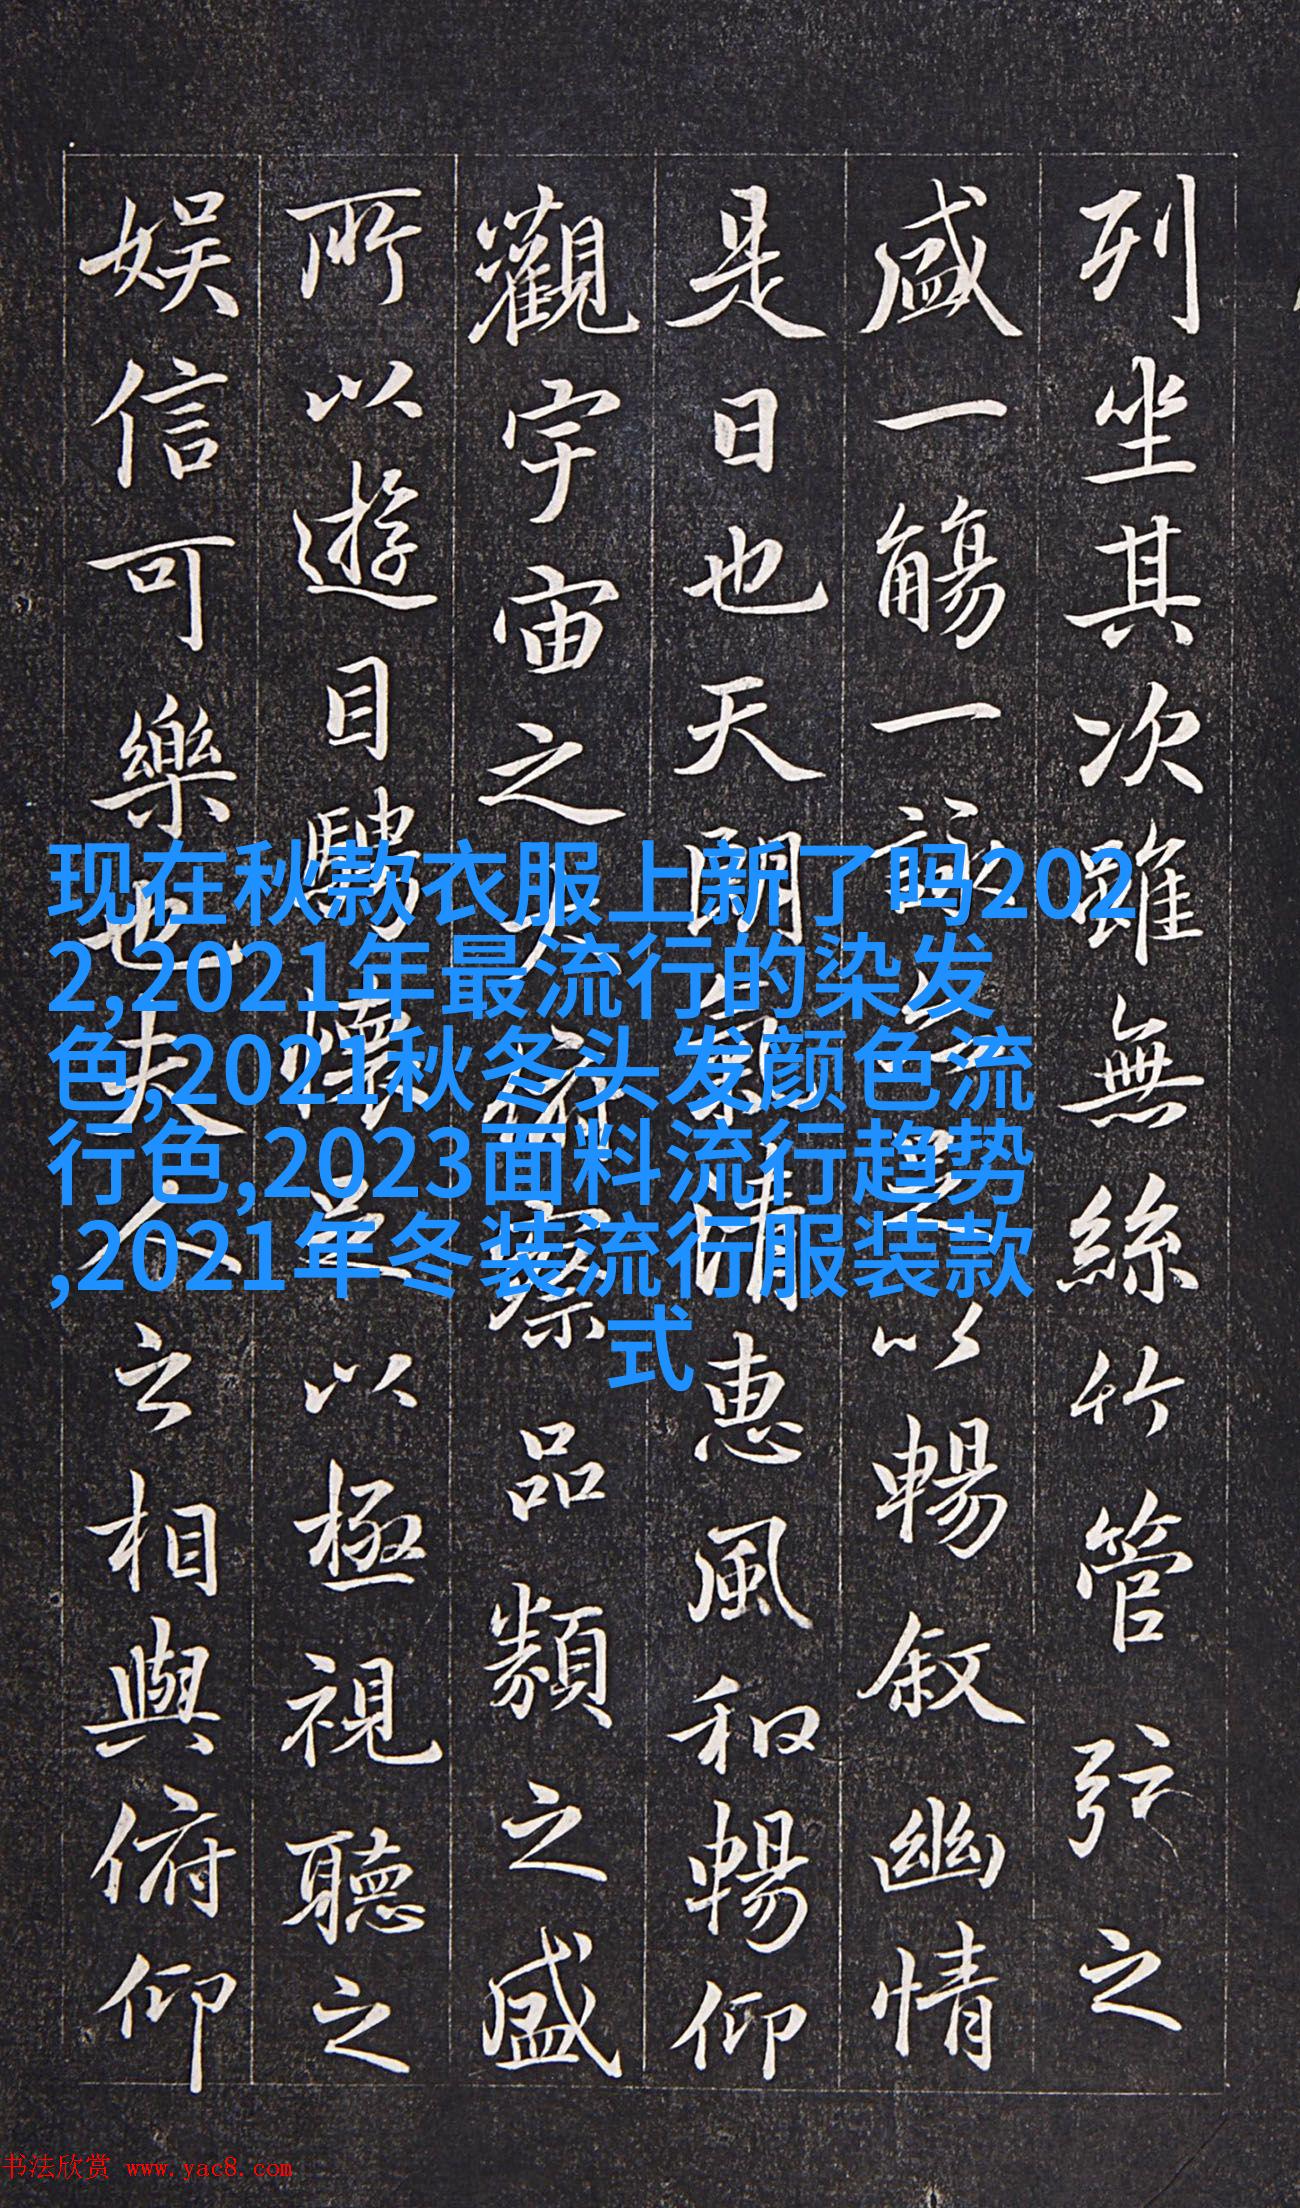 列坐其次雖無絲竹管弦之
盛一觴一詠以暢敘幽情
是日也天朗氣清惠風和暢仰
觀宇宙之大俯察品類之盛
所以遊目騁懷足以極視聽之
娛信可樂也夫人之相與俯仰
现在秋款衣服上新了吗202
2,2021年最流行的染发
色,2021秋冬头发颜色流
行色,2023面料流行趋势
,2021年冬装流行服装款
式
书法欣赏 www.yac8.com